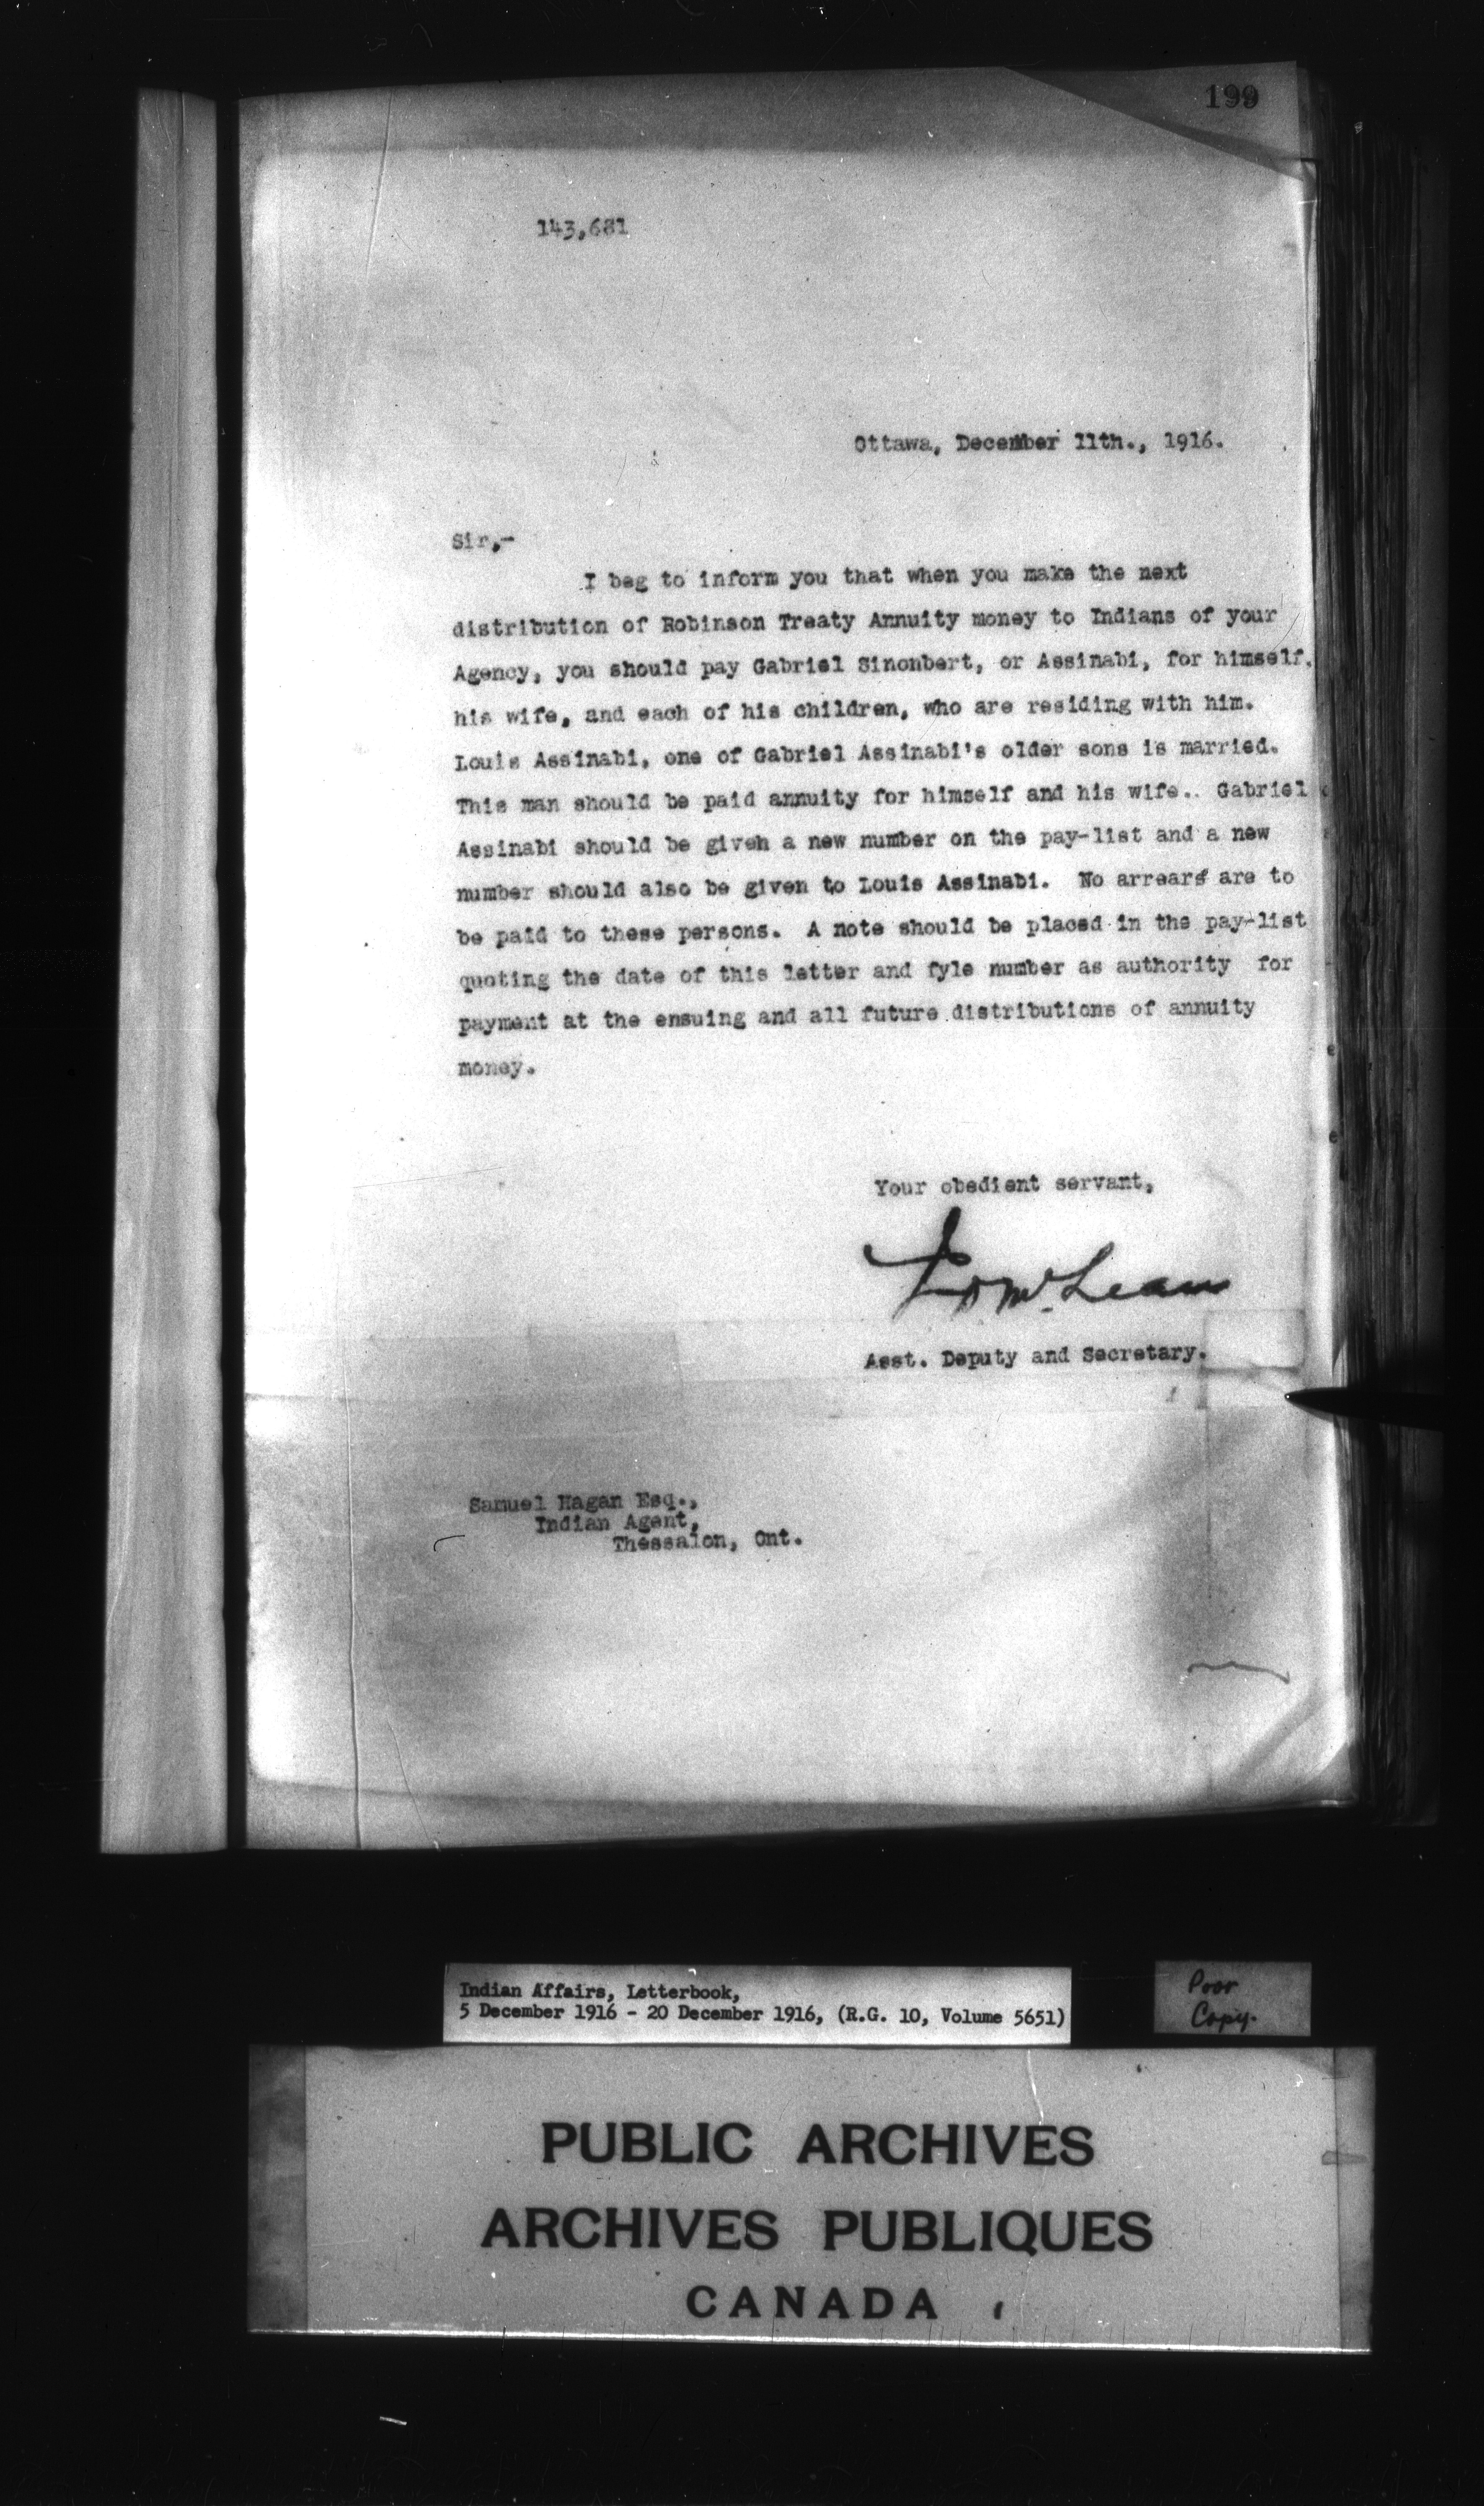 199
143,681
Ottawa, December 11th., 1916.
Sir,-
I beg to inform you that when you make the next
distribution of Robinson Treaty Annuity money to Indians of your
Agency, you should pay Gabriel Sinonbert, or Assinabi, for himself,
his wife, and each of his children, who are residing with him.
Louis Assinabi, one of Gabriel Assinabi's older sons is married.
This man should be paid annuity for himself and his wife.. Gabriel
Assinabi should be given a new number on the pay-list and a new
number should also be given to Louis Assinabi. No arrears are to
be paid to these persons. A note should be placed in the pay-list
quoting the date of this letter and fyle number as authority for
payment at the ensuing and all future distributions of annuity
money.
Your obedient servant,
McLean
Asst. Deputy and Secretary.
Samuel Hagan Esq.,
Indian Agent,
Thessalon, Ont.
Indian Affairs, Letterbook,
5 December 1916 - 20 December 1916, (R.G. 10, Volume 5651)
Poor
Copy.
PUBLIC ARCHIVES
ARCHIVES PUBLIQUES
CANADA